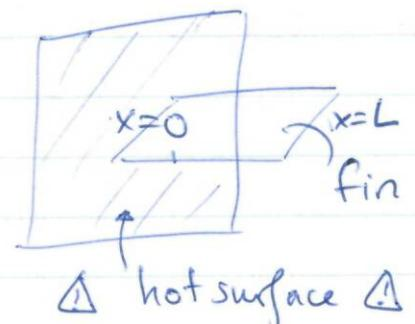 x=0 x=L
fin
⚠ hot surface ⚠